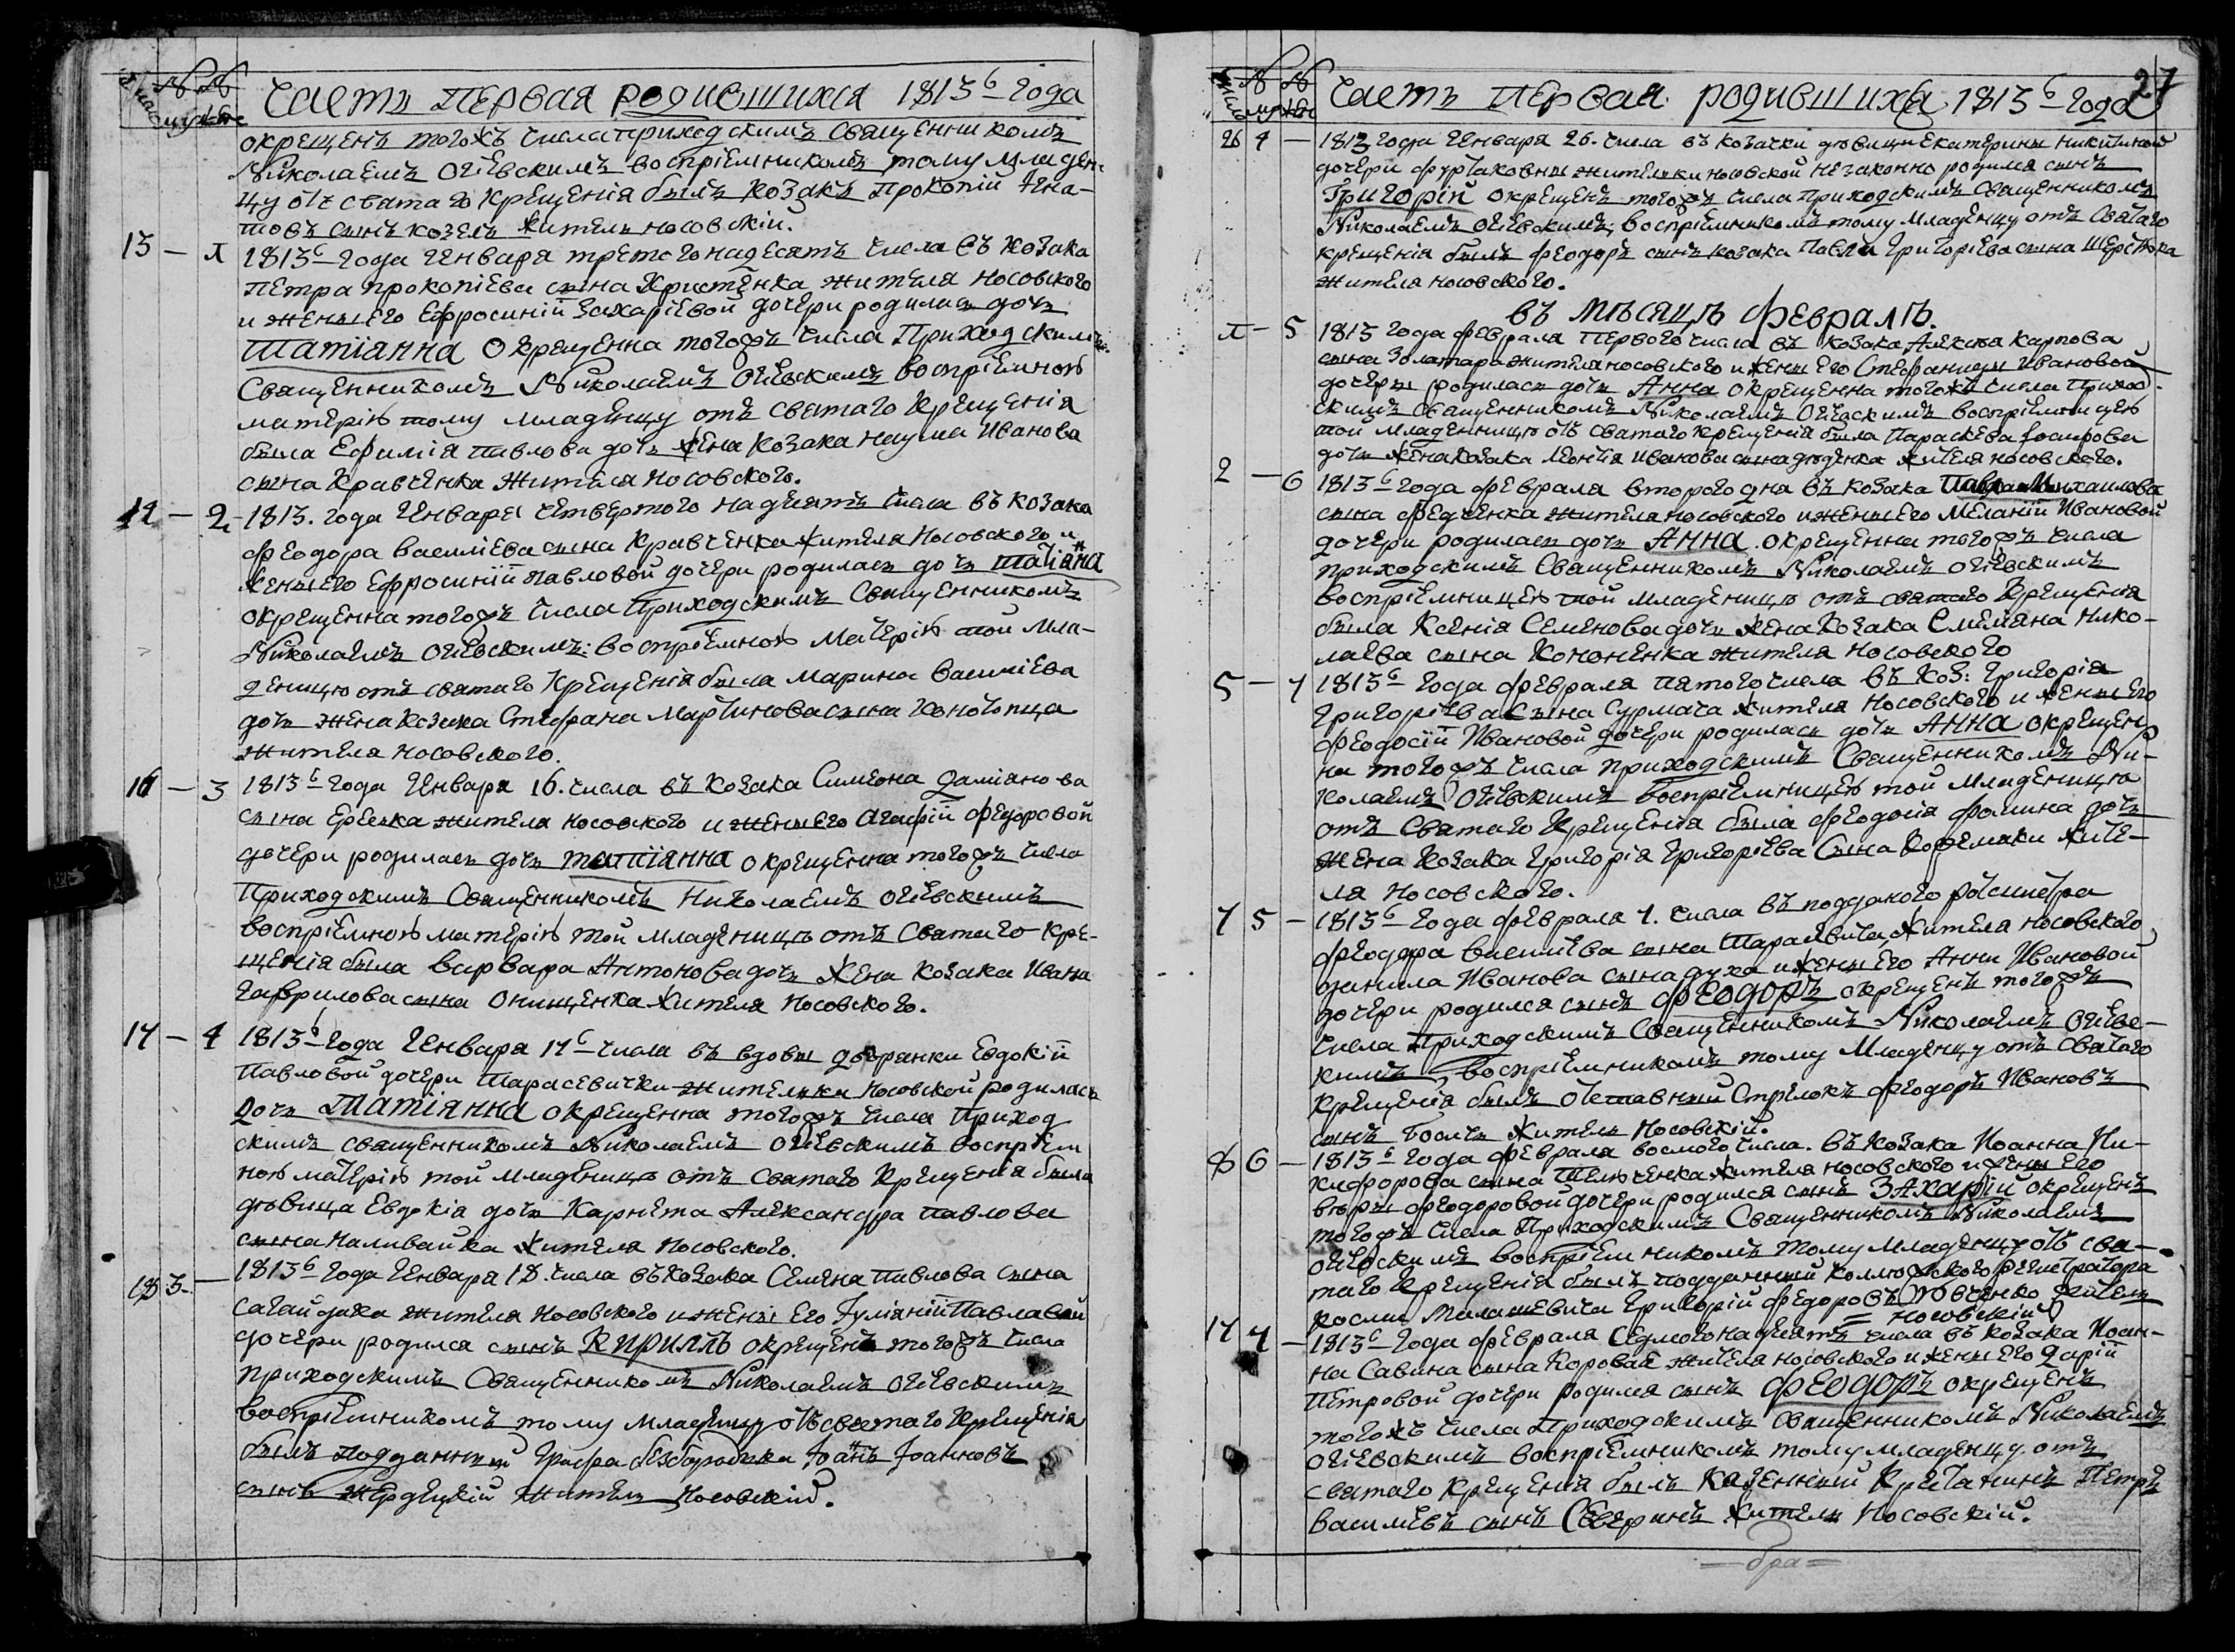 Часть Первая родившихся 1813 б Года
окрещенъ тогожъ числа приходскимъ Священникомъ
Николаемъ Огіевскимъ воспріемникомъ тому младен-
цу отъ святаго крещенія былъ козакъ Прокопій Игна-
товъ сынъ козелъ житель носовскій.
13 — 1 1813 б Года Генваря третогонадесять числа въ козака
Петра прокопіева сына Христенка жителя Носовского
и жены его Ефросиніи Захаріевой дочери родилась дочь
Татіанна окрещенна тогожъ числа Приходскимъ
Священникомъ Николаемъ Огіевскимъ воспріемною
матерію тому младенцу отъ святаго крещенія
была Ефимія павлова дочь жена козака наума Иванова
сына Кравченка жителя Носовского.
14 — 2 1813. года Генваря четвертого надцять числа въ козака
Феодора василіева сына Кравченка жителя Носовского и
жены его Ефросиніи павловой дочери родилась дочь Татіанна
окрещенна тогожъ числа приходскимъ Священникомъ
Николаемъ Огіевскимъ: воспріемною Матерію той мла-
деницю отъ святаго крещенія была Марина василіева
дочь жена козака Стефана Мартинова сына Конотопца
жителя носовского.
16 — 3 1813 б года Генваря 16. числа въ козака Симеона даміанова
сына жителя носовского и жены его Агафіи Федоровой
дочери родилась дочь татіанна окрещенна тогожъ числа
Приходскимъ Священникомъ Николаемъ Огіевскимъ
воспріемною матерію той младеницѣ отъ Святаго кре-
щенія была варвара Антонова дочь жена козака Ивана
гаврилова сына Онищенка жителя Носовского.
17 — 4 1813 б года Генваря 17 б числа въ вдовы дворянки Евдокіи
Павловой дочери Тарасевички жителька Носовской родилась
дочь Татіанна окрещенна тогожъ числа Приход
скимъ священникомъ Николаемъ Огіевскимъ воспріем
ною матерію той младеницѣ отъ святаго крещенія была
дѣвица Евдокіа дочь Карнета Александра павлова
сына Наливайка жителя Носовского.
18 3 — 1813 б года Генваря 18. числа въ козака Семена павлова сына
сагайдака жителя Носовского и жены его Іуліяніи Павловой
дочери родился сынъ Кирилъ окрещенъ тогожъ числа
приходскимъ Священникомъ Николаемъ Огіевскимъ
воспріемникомъ тому младенцу отъ святаго крещенія
былъ подданный графа безбородька Іоанъ Іоанновъ
сынъ Жердецкій житель Носовскій.
27
Часть Первая родившихся 1813 б года
26 4 — 1813 года Генваря 26. числа въ козачки дѣвици екатерины никитиной
дочери фуртаковны жительки носовской незаконно родился сынъ
Григорій окрещенъ тогожъ числа Приходскимъ Священникомъ
Николаемъ Огіевскимъ, воспріемникомъ тому младенцу отъ Святаго
крещенія былъ феодоръ сынъ козака Павла Григоріева сына шерстюка
жителя носовского.
въ мѣсяцѣ февралѣ.
1 — 5 1813 года февраля Первого числа въ козака Алексѣя карпова
сына Золотара жителя носовского и жены его Стефаниды Ивановой
дочери родилась дочь Анна окрещенна тогожъ числа Приход-
скимъ Священникомъ Николаемъ Огіевскимъ воспріемницею
той младеницѣ отъ святаго крещенія была Параскева
дочь жена козака Леонтія иванова сына дѣденка жителя носовского.
2 — 6 1813 б года февраля второго дня въ козака Михаилова
сына Федченка жителя носовского и жены его Меланіи Ивановой
дочери родилась дочь Анна. окрещенна тогожъ числа
приходскимъ Священникомъ Николаемъ огіевскимъ
воспріемницею той младеницѣ отъ святаго Крещенія
была Ксенія Семенова дочь жена козака Емеліана Нико-
лаева сына Кононенка жителя Носовского
5 — 7 1813 б года февраля пятого числа въ Коз: Григорія
Григоріева Сына Сурмача жителя носовского и жены его
феодосіи Ивановой дочери родилась дочь АННА окрещен
на тогожъ числа приходскимъ Священникомъ Ни-
колаемъ Огіевскимъ воспріемницею той младеницѣ
отъ Святаго Крещенія была Феодосія фомина дочь
жена козака Григорія Григоріева Сына Кожемяки жите-
ля носовского.
7 5 — 1813 б года февраля 7. числа въ подданого ротмистра
феодора василіева сына Тарасевича, жителя носовского
данила Иванова сына духа и жены его Анни Ивановой
дочери родился сынъ феодоръ окрещенъ тогожъ
числа Приходскимъ Священникомъ Николаемъ Огіевс-
кимъ, воспріемникомъ тому младенцу отъ святаго
крещенія былъ отставный Стрелокъ феодоръ Ивановъ
сынъ житель Носовскій.
8 6 — 1813 б года февраля восмого числа. въ козака Иоанна Ни-
кифорова сына жителя носовского и жены его
феодоровой дочери родился сынъ Захарій окрещенъ
тогожъ числа Приходскимъ Священникомъ Николаемъ
огіевскимъ воспріемникомъ тому младенцу отъ свя-
таго крещенія былъ подданный коллежского регистратора
Милашевича Григорій федоровъ житель
носовскій
17 7 — 1813 б года февраля Седмогонадцять числа въ козака Иоан-
на Савина сына Коровая жителя носовского и жены его Дарій
Петровой дочери родился сынъ феодоръ окрещенъ
тогожъ числа Приходскимъ Священникомъ Николаемъ
огіевскимъ воспріемникомъ тому младенцу. отъ
святаго крещенія былъ Казенный Крестанинъ Петръ
василіевъ сынъ Северинъ житель Носовскій.
= бра =